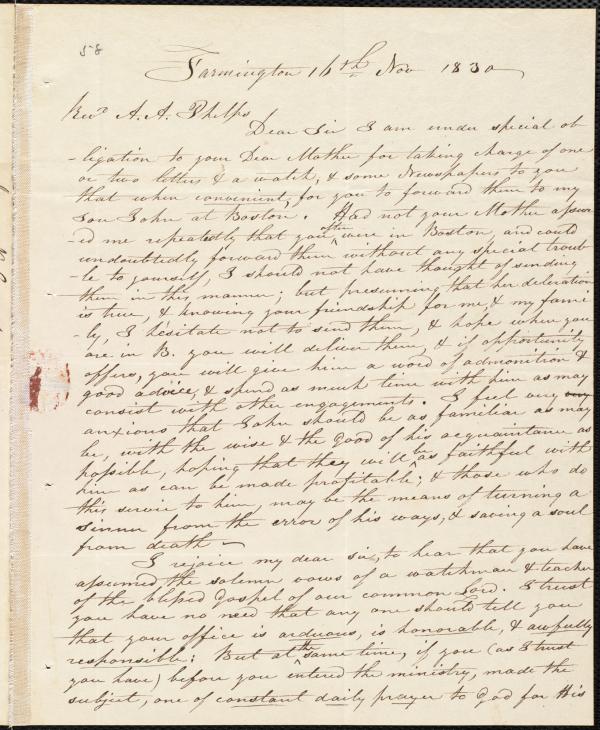 58
Farmington 16th Nov 1830
Revd A. A. Phelps
Dear Sir I am under special ob
-ligation to your Dear Mother for taking charge of one
or two letters & a watch, & some Newspapers to you
that when convenient, for you to forward them to my
Son John at Boston. Had not your Mother assur
-ed me repeatedly that you often were in Boston, and could
undoubtedly forward them without any special troub
-le to yourself, I should not have thought of sending
them in this manner; but presuming that her decleration
is true, & knowing your friendship for me, & my fami
-ly, I hesitate not to send them, & hope when you
are in B. you will deliver them, & if opportunity
offers, you will give him a word of admonition &
good advice, & spend as much time with him as may
consist with other engagements. I feel very
anxious that John should be as familiar as may
be, with the wise & the good of his acquaintance as
possible, hoping that they will be as faithful with
him as can be made profitable; & those who do
this service to him, may be the means of turning a
sinner from the error of his ways, & saving a soul
from death –
I rejoice my dear sir, to hear that you have
assumed the solemn vows of a watchman & teacher
of the blessed Gospel of our common Lord. I trust
you have no need that any one should tell you
that your office is arduous, is honorable, & awfully
responsible; But at the same time, if you (as I trust
you have) before you entered the ministry, made the
subject, one of constant daily prayer to God for His